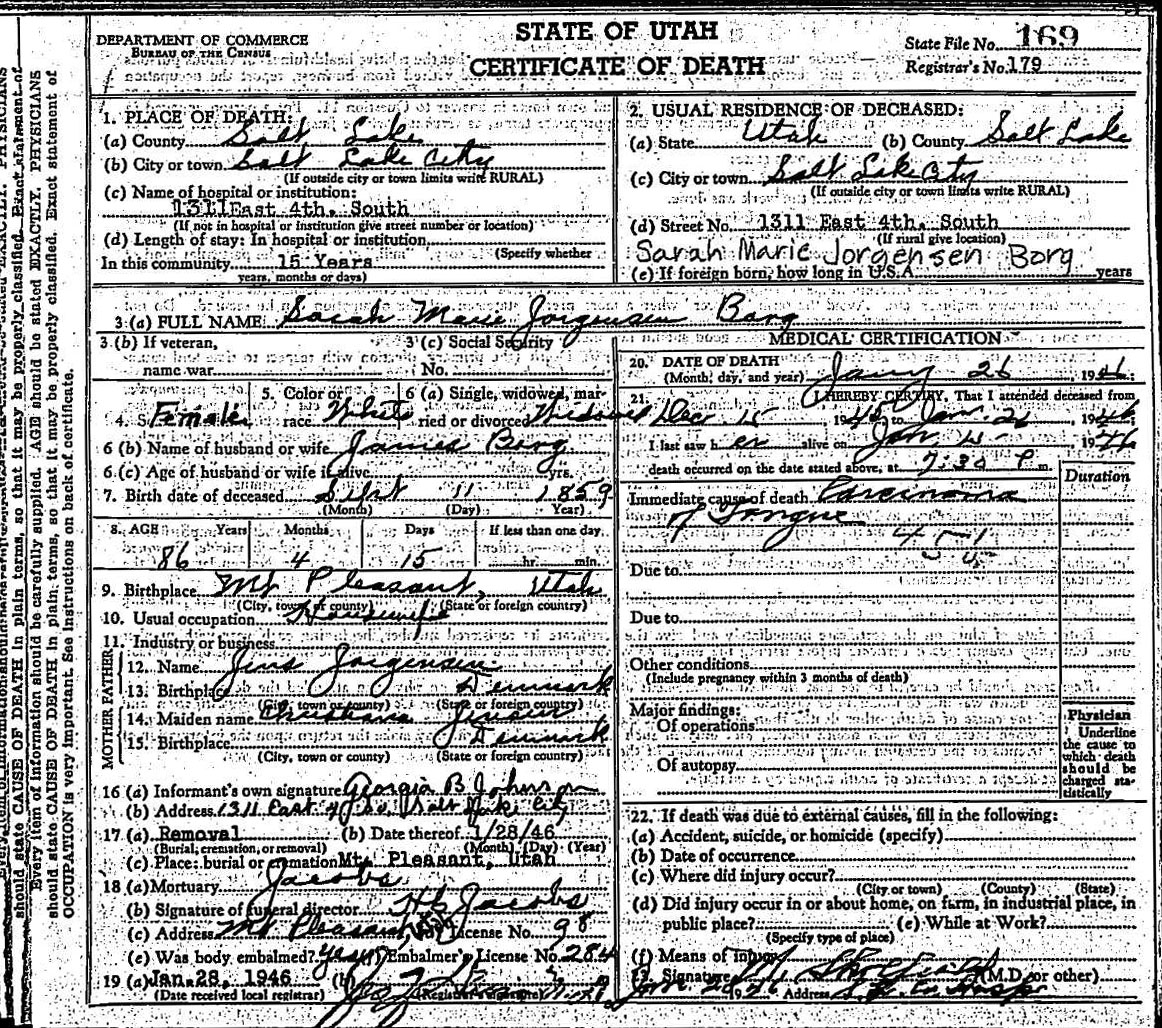 STATE OF UTAH
CERTIFICATE OF DEATH
DEPARTMENT OF COMMERCE
BUREAU OF THE CENSUS
State File No. 169
Registrar's No. 179
1. PLACE OF DEATH:
(a) County Salt Lake
(b) City or town Salt Lake City
(If outside city or town limits write RURAL)
(c) Name of hospital or institution:
1311 East 4th. South
(If not in hospital or institution give street number or location)
(d) Length of stay: In hospital or institution
(Specify whether
In this community 15 Years
years, months or days)
2. USUAL RESIDENCE OF DECEASED:
(a) State Utah (b) County Salt Lake
(c) City or town Salt Lake City
(If outside city or town limits write RURAL)
(d) Street No. 1311 East 4th. South
(If rural give location)
Sarah Marie Jorgensen Borg
(e) If foreign born, how long in U.S.A. years
3 (a) FULL NAME Sarah Marie Jorgensen Borg
3 (b) If veteran, name war
3 (c) Social Security No.
4. Sex Female
5. Color or race White
6 (a) Single, widowed, married or divorced Widowed
6 (b) Name of husband or wife James Borg
6 (c) Age of husband or wife if alive yrs.
7. Birth date of deceased Sept 11 1859
(Month) (Day) Year)
8. AGE Years Months Days If less than one day
86 4 15 hr. min.
9. Birthplace Mt Pleasant, Utah
(City, town or county) (State or foreign country)
10. Usual occupation Housewife
11. Industry or business
FATHER
12. Name Jens Jorgensen
13. Birthplace Denmark
(City, town or county) (State or foreign country)
MOTHER
14. Maiden name Christiana Jensen
15. Birthplace Denmark
(City, town or county) (State or foreign country)
16 (a) Informant's own signature Georgia B Johnson
(b) Address 1311 East 4 So. Salt Lake City
17 (a) Removal (b) Date thereof 1/28/46
(Burial, cremation, or removal) (Month) (Day) (Year)
(c) Place: burial or cremation Mt. Pleasant, Utah
18 (a) Mortuary Jacobs
(b) Signature of funeral director Jacobs
(c) Address Mt Pleasant, License No. 98
(e) Was body embalmed? yes Embalmer's License No. 284
19 (a) Jan. 28, 1946 (b)
(Date received local registrar) (Registrar's signature)
MEDICAL CERTIFICATION
20. DATE OF DEATH
(Month, day, and year) Jany 26, 1946
21. I HEREBY CERTIFY, That I attended deceased from
Dec 15 1945 to Jan. 26, 1946
I last saw her alive on Jan 1946
death occurred on the date stated above, at 7:30 P m.
Duration
Immediate cause of death Carcinoma
of Tongue
Due to
Due to
Other conditions
(Include pregnancy within 3 months of death)
Major findings:
Of operations
Of autopsy
Physician
Underline the cause to which death should be charged statistically
22. If death was due to external causes, fill in the following:
(a) Accident, suicide, or homicide (specify)
(b) Date of occurrence
(c) Where did injury occur?
(City or town) (County) (State)
(d) Did injury occur in or about home, on farm, in industrial place, in
public place? (e) While at Work?
(Specify type of place)
(f) Means of Injury
Signature (M.D. or other)
Address
should state CAUSE OF DEATH in plain terms, so that it may be properly classified. Exact statement of
Every item of information should be carefully supplied. AGE should be stated EXACTLY. PHYSICIANS
should state CAUSE OF DEATH in plain terms, so that it may be properly classified. Exact statement of
OCCUPATION is very important. See instructions on back of certificate.